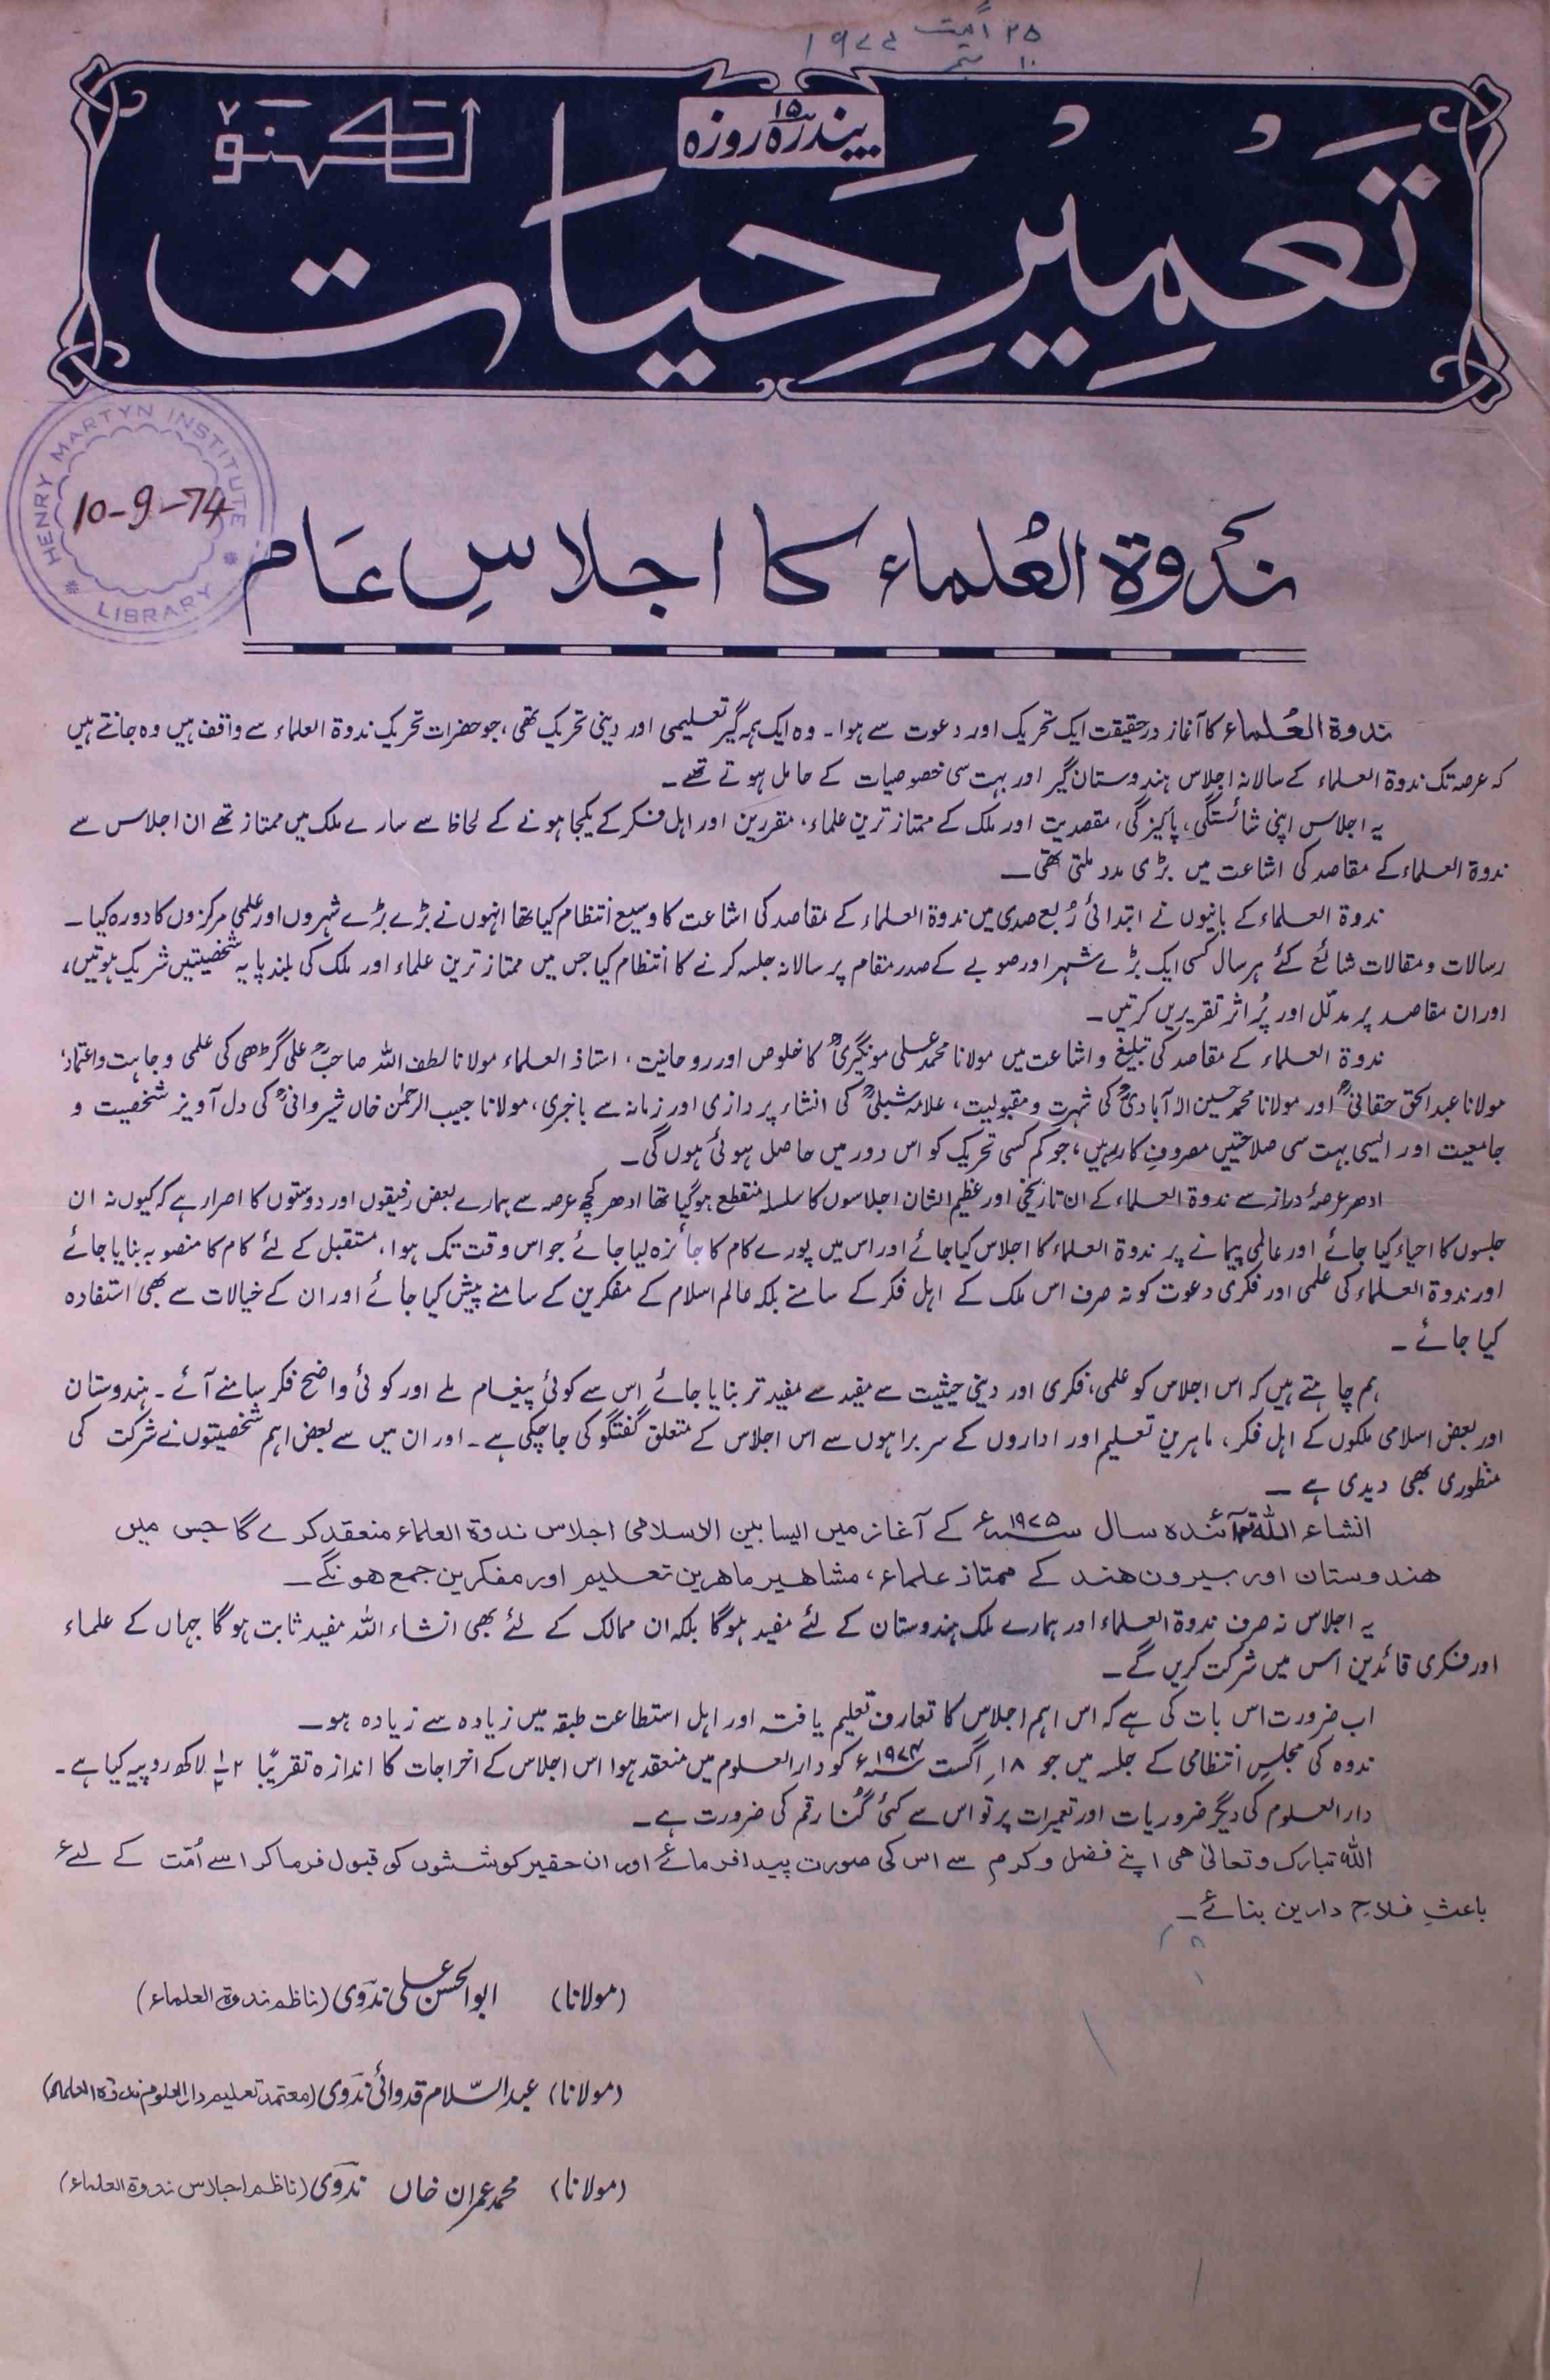 ۲۵ اگست ۱۹۷۴
۱۰ ستمبر
پندرہ ۱۵ روزہ
لکھنؤ
تعمیرِ حیات
HENRY MARTYN INSTITUTE
LIBRARY
10-9-74
ندوۃ العُلماء کا اجلاسِ عَام
ندوۃ العُلماء کا آغاز درحقیقت ایک تحریک اور دعوت سے ہوا۔ وہ ایک ہمہ گیر تعلیمی اور دینی تحریک تھی، جو حضرات تحریک ندوۃ العلماء سے واقف ہیں وہ جانتے ہیں
کہ عرصہ تک ندوۃ العلماء کے سالانہ اجلاس ہندوستان گیر اور بہت سی خصوصیات کے حامل ہوتے تھے۔
یہ اجلاس اپنی شائستگی، پاکیزگی، مقصدیت اور ملک کے ممتاز ترین علماء، مقررین اور اہل فکر کے یکجا ہونے کے لحاظ سے سارے ملک میں ممتاز تھے ان اجلاس سے
ندوۃ العلماء کے مقاصد کی اشاعت میں بڑی مدد ملتی تھی۔
ندوۃ العلماء کے بانیوں نے ابتدائی رُبع صدی میں ندوۃ العلماء کے مقاصد کی اشاعت کا وسیع انتظام کیا تھا انہوں نے بڑے بڑے شہروں اور علمی مرکزوں کا دورہ کیا۔
رسالات و مقالات شائع کئے ہر سال کسی ایک بڑے شہر اور صوبے کے صدر مقام پر سالانہ جلسہ کرنے کا انتظام کیا جس میں ممتاز ترین علماء اور ملک کی بلند پایہ شخصیتیں شریک ہوتیں،
اور ان مقاصد پر مدلّل اور پُر اثر تقریریں کرتیں۔
ندوۃ العلماء کے مقاصد کی تبلیغ و اشاعت میں مولانا محمد علی مونگیریؒ کا خلوص اور روحانیت، استاذ العلماء مولانا لطف اللہ صاحبؒ علی گڑھی کی علمی وجاہت و اعتماد،
مولانا عبدالحق حقانیؒ اور مولانا محمد حسین الہ آبادیؒ کی شہرت و مقبولیت، علامہ شبلیؒ کی انشاء پردازی اور زمانہ سے باخبری، مولانا حبیب الرحمٰن خاں شیروانیؒ کی دل آویز شخصیت و
جامعیت اور ایسی بہت سی صلاحتیں مصروفِ کار رہیں، جو کم کسی تحریک کو اس دور میں حاصل ہوئی ہوں گی۔
ادھر عرصۂ دراز سے ندوۃ العلماء کے ان تاریخی اور عظیم الشان اجلاسوں کا سلسلہ منقطع ہوگیا تھا ادھر کچھ عرصہ سے ہمارے بعض رفیقوں اور دوستوں کا اصرار ہے کہ کیوں نہ ان
جلسوں کا احیاء کیا جائے اور عالمی پیمانے پر ندوۃ العلماء کا اجلاس کیا جائے اور اس میں پورے کام کا جائزہ لیا جائے جو اس وقت تک ہوا، مستقبل کے لئے کام کا منصوبہ بنایا جائے
اور ندوۃ العلماء کی علمی اور فکری دعوت کو نہ صرف اس ملک کے اہل فکر کے سامنے بلکہ عالم اسلام کے مفکرین کے سامنے پیش کیا جائے اور ان کے خیالات سے بھی استفادہ
کیا جائے۔
ہم چاہتے ہیں کہ اس اجلاس کو علمی، فکری اور دینی حیثیت سے مفید سے مفید تر بنایا جائے اس سے کوئی پیغام ملے اور کوئی واضح فکر سامنے آئے۔ ہندوستان
اور بعض اسلامی ملکوں کے اہل فکر، ماہرین تعلیم اور اداروں کے سربراہوں سے اس اجلاس کے متعلق گفتگو کی جاچکی ہے۔ اور ان میں سے بعض اہم شخصیتوں نے شرکت کی
منظوری بھی دیدی ہے۔
انشاء اللہ تعالیٰ آئندہ سال ۱۹۷۵ء کے آغاز میں ایسا بین الاسلامی اجلاس ندوۃ العلماء منعقد کرے گا جس میں
ہندوستان اور بیرون ہند کے ممتاز علماء، مشاہیر ماہرین تعلیم اور مفکرین جمع ہونگے۔
یہ اجلاس نہ صرف ندوۃ العلماء اور ہمارے ملک ہندوستان کے لئے مفید ہوگا بلکہ ان ممالک کے لئے بھی انشاء اللہ مفید ثابت ہوگا جہاں کے علماء
اور فکری قائدین اس میں شرکت کریں گے۔
اب ضرورت اس بات کی ہے کہ اس اہم اجلاس کا تعارف تعلیم یافتہ اور اہل استطاعت طبقہ میں زیادہ سے زیادہ ہو۔
ندوہ کی مجلسِ انتظامی کے جلسہ میں جو ۱۸؍ اگست ۱۹۷۴ء کو دارالعلوم میں منعقد ہوا اس اجلاس کے اخراجات کا اندازہ تقریباً ۲½ لاکھ روپیہ کیا ہے۔
دارالعلوم کی دیگر ضروریات اور تعمیرات پر تو اس سے کئی گُنا رقم کی ضرورت ہے۔
اللہ تبارک و تعالیٰ ہی اپنے فضل و کرم سے اس کی صورت پیدا فرمائے اور ان حقیر کوششوں کو قبول فرماکر اسے اُمّت کے لئے
باعثِ فلاحِ دارین بنائے۔
(مولانا) ابوالحسن علی ندوی (ناظم ندوۃ العلماء)
(مولانا) عبدالسّلام قدوائی ندوی (معتمد تعلیم دارالعلوم ندوۃ العلماء)
(مولانا) محمد عمران خاں ندوی (ناظم اجلاس ندوۃ العلماء)